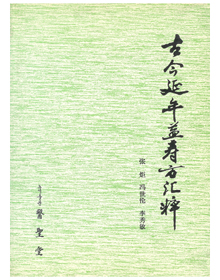 古今延年益寿方汇粹
张炬 冯世伦 李秀敏
聖堂